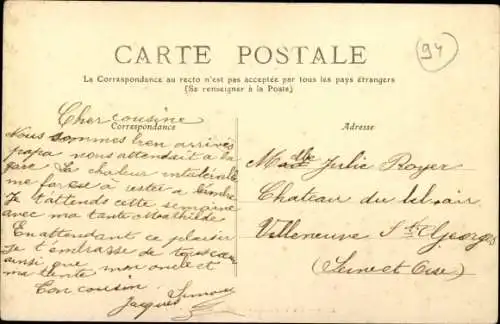 94
CARTE POSTALE
La Correspondance au recto n'est pas acceptée par tous les pays étrangers
(Se renseigner à la Poste)
Correspondance
Adresse
Cher cousine
Nous sommes bien arrivés
papa nous attendait a la
gare La chaleur
me force a rester a l'ombre
Je t'attends cette semaine
avec ma tante Mathilde
En attendant ce plaisir
Je t'embrasse de tout cœur
ainsi que mon oncle et
ma tante
Ton cousin
Jacques
Madlle Julie Royer
Chateau du bel air
Villeneuve St Georges
(Seine et Oise)